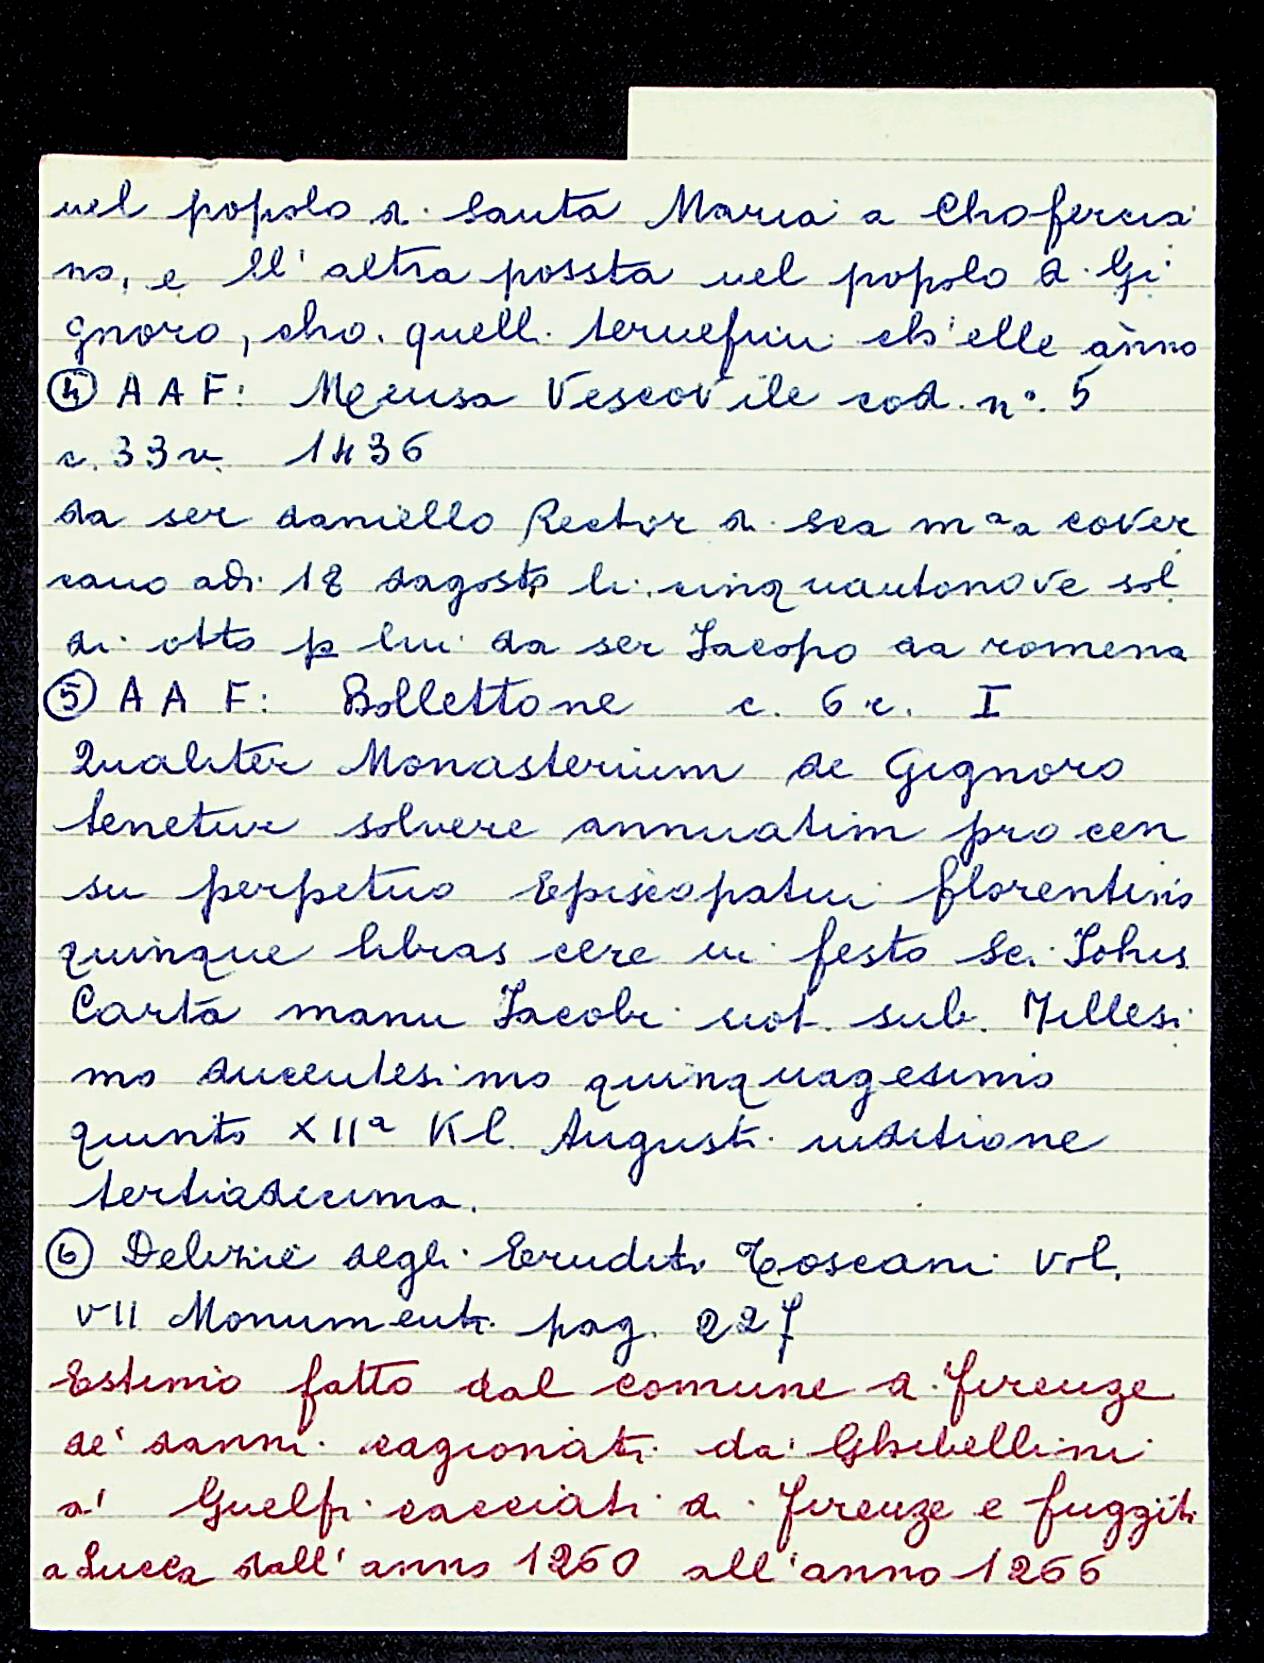 nel popolo di Santa Maria a Chofercia
no, e ll'altra possta nel popolo di Gi
gnoro, cho. quelli chell'elle ànno
④ AAF: Mensa Vescovile cod. n°. 5
c. 33v. 1436
da ser daniello Rector di sca mᵃa cover
cano adi 18 dagosto li. cinquantanove sol
di otto p lui da ser Jacopo da romena
⑤ AAF: Bollettone c. 6 r. I
Qualiter Monasterium de Gignoro
tenetur solvere annuatim pro cen
su perpetuo Episcopatui florentino
quinque libras cere in festo Sc. Johis
Carta manu Jacobi not. sub. Millesi
mo ducentesimo quinquagesimo
quinto XIIª Kl. Augusti inditione
tertiadecima.
⑥ Delizie degli Eruditi Toscani Vol.
VII Monumenti pag. 227
Estimo fatto dal comune di Firenze
de' danni cagionati da' Ghibellini
a' Guelfi cacciati di Firenze e fuggiti
a Lucca dall'anno 1260 all'anno 1266